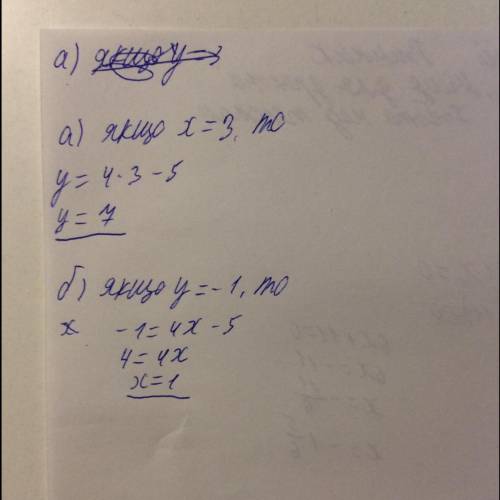 а) якщо y =
а) якщо x = 3, то
y = 4 · 3 - 5
y = 7
б) якщо y = -1, то
x -1 = 4x - 5
4 = 4x
x = 1